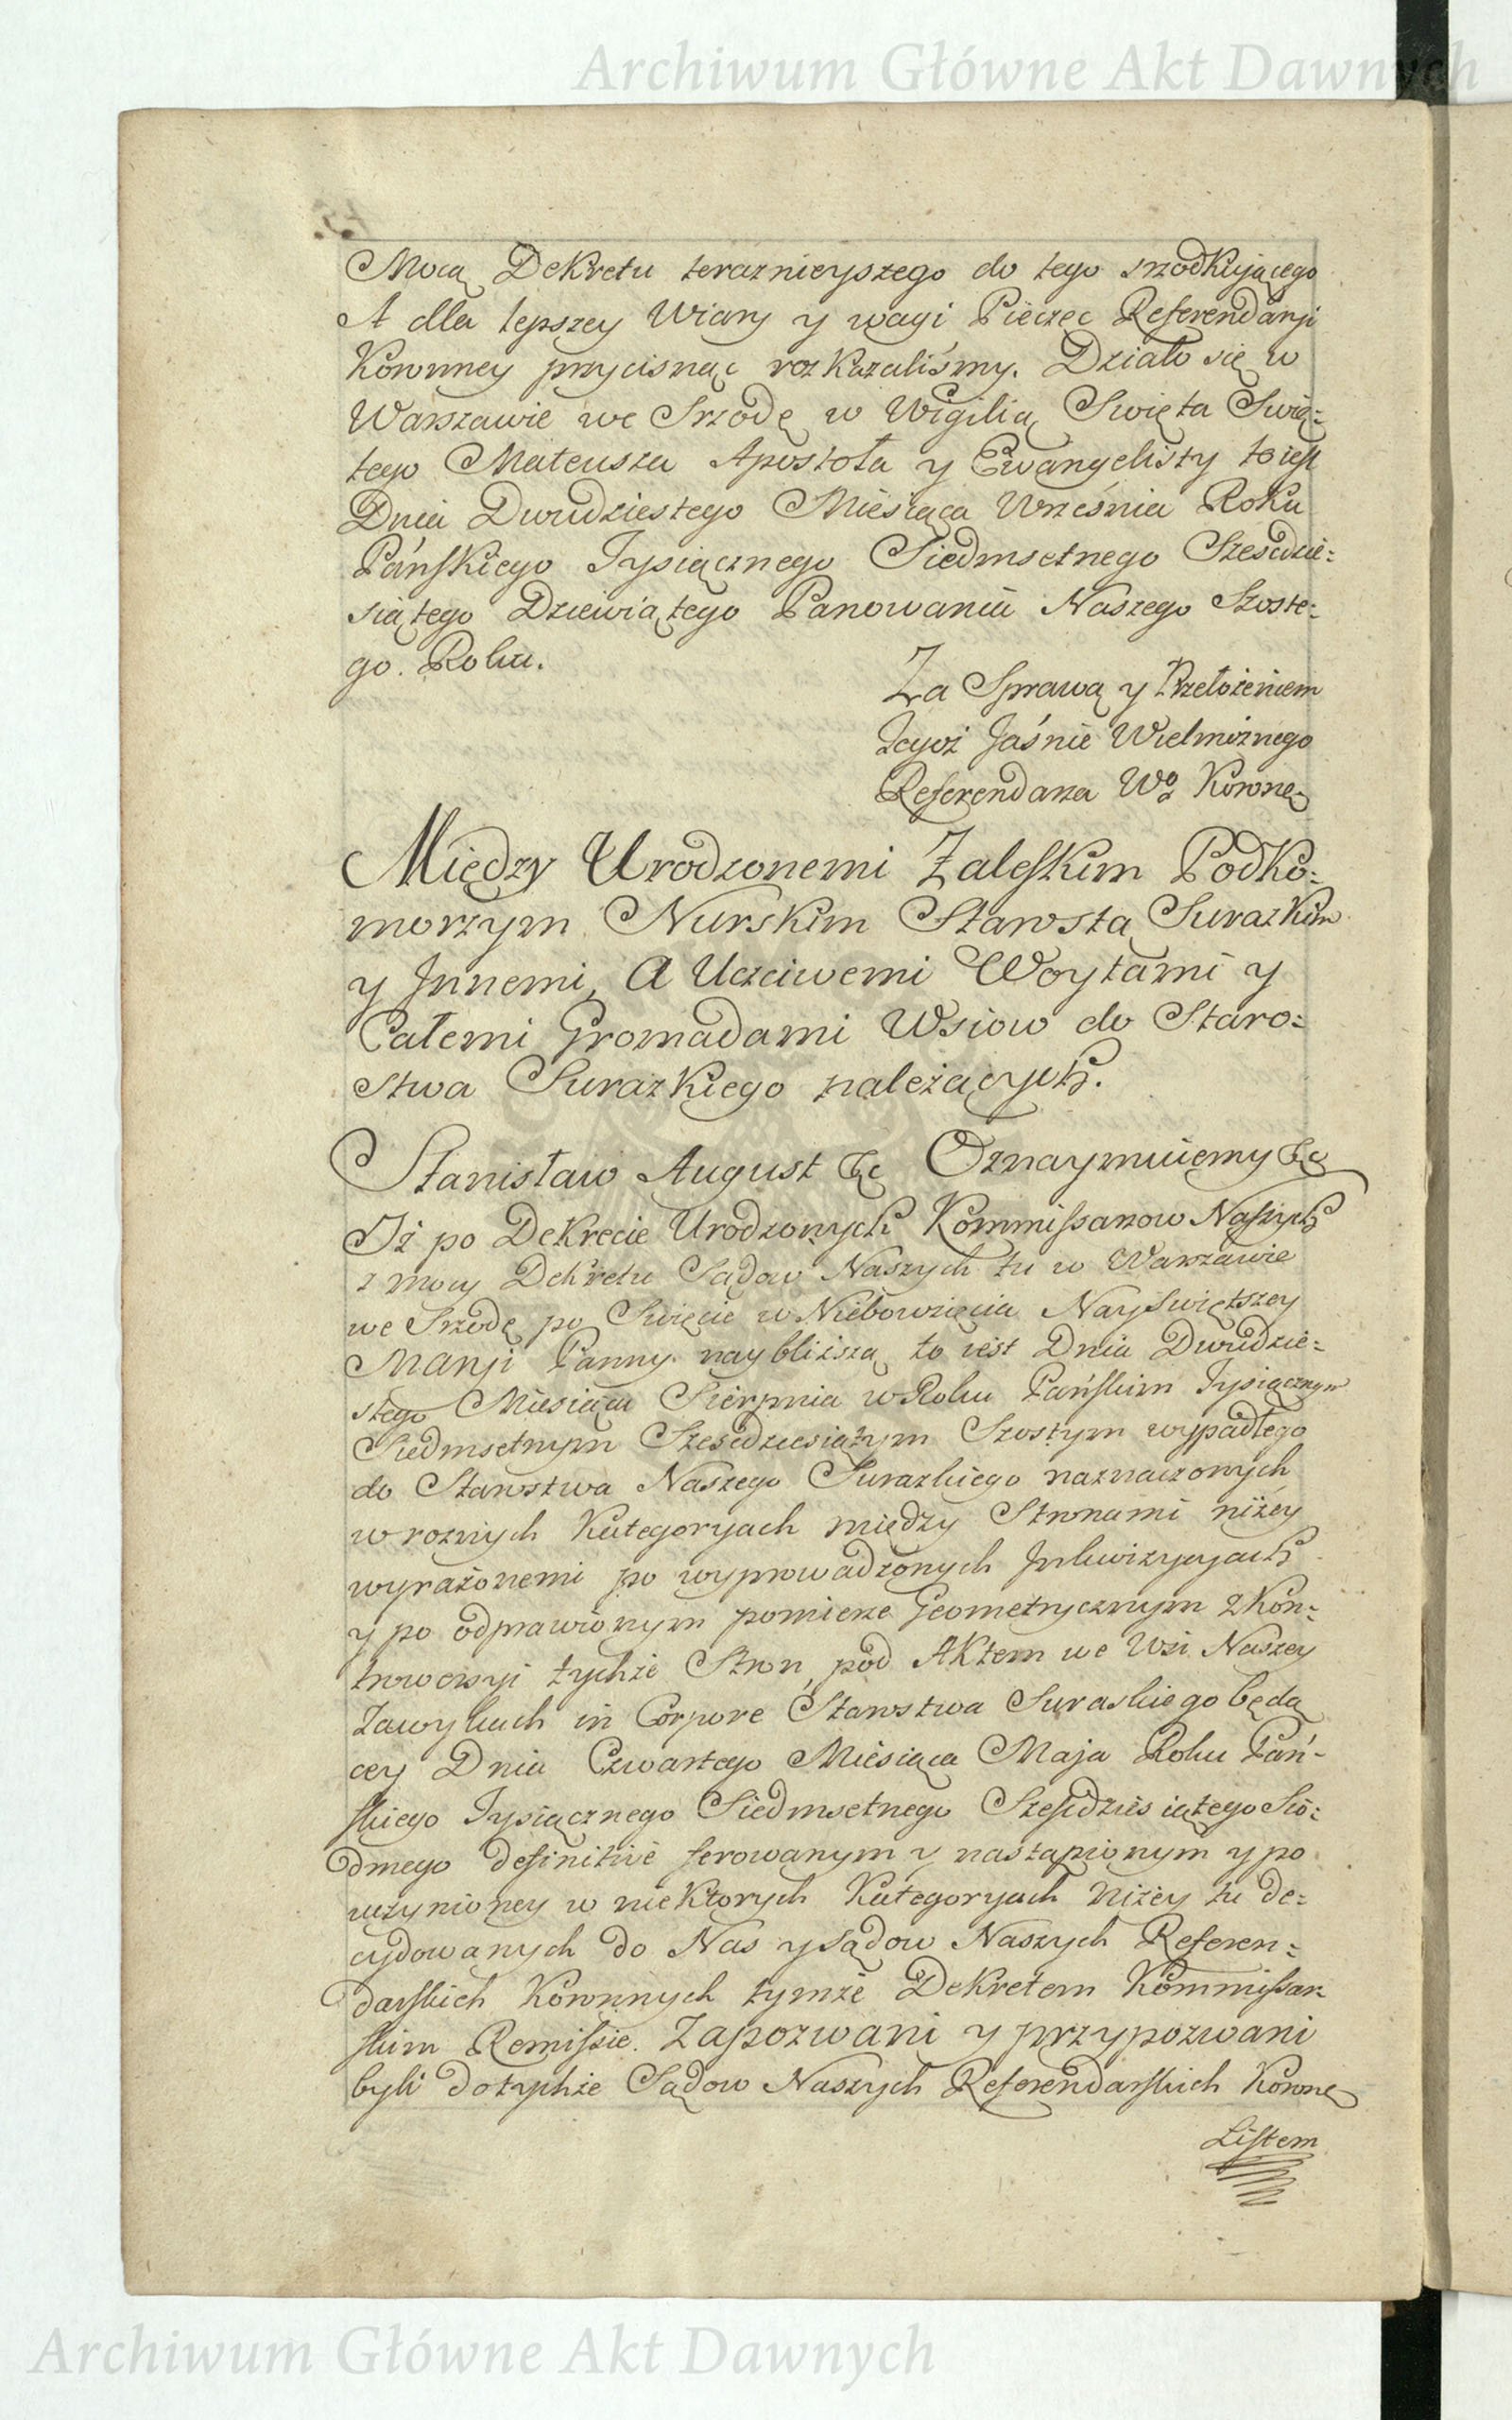 Archiwum Główne Akt Dawnych
Mocą Dekretu teraznieyszego do tego srzodkującego
A dla lepszey Wiary y wagi Pieczęc Referendaryi
Koronney przycisnąc rozkazaliśmy. Działo się w
Warszawie we Srzodę w Wigilią Swięta Swię=
tego Mateusza Apostoła y Ewangelisty to iest
Dnia Dwudziestego Miesiąca Września Roku
Pańskiego Tysiącznego Siedmsetnego Szescdzie=
siątego Dziewiątego Panowania Naszego Szoste=
go. Roku.
Za Sprawą y Przełożeniem
Tegoż Jaśnie Wielmożnego
Referendarza Wo Koronne
Między Urodzonemi Zaleskim Podko=
morzym Nurskim Starostą Surazkim
y Innemi, A Uczciwemi Woytami y
Całemi Gromadami Wsiow do Staro=
stwa Surazkiego należących.
Stanisław August &c Oznaymuiemy &c
Iż po Dekrecie Urodzonych Kommissarzow Naszych
z mocy Dekretu Sądow Naszych tu w Warszawie
we Srzodę po Swięcie w Niebowzięcia Nayświętszey
Maryi Panny naybliższą to iest Dnia Dwudzie=
stego Miesiąca Sierpnia w Roku Pańskim Tysiącznym
Siedmsetnym Szescdziesiątym Szostym wypadłego
do Starostwa Naszego Surazkiego naznaczonych
w roznych Kategoryach między Stronami niżey
wyrażonemi po wyprowadzonych Inkwizycyach
y po odprawionym pomierze Geometrycznym z Kon=
trowersyi tychże Stron, pod Aktem we Wsi Naszey
Zawykach in Corpore Starostwa Suraskiego będą
cey Dnia Czwartego Miesiąca Maja Roku Pań=
skiego Tysiącznego Siedmsetnego Szesdziesiątego Sio=
dmego definitivé ferowanym y nastąpionym y po
uczynioney w niektorych Kategoryach niżey tu de=
cydowanych do Nas y Sądow Naszych Referen=
darskich Koronnych tymże Dekretem Kommissar
skim Remissie. Zapozwani y przypozwani
byli do tychże Sądow Naszych Referendarskich Koronne
Listem
Archiwum Główne Akt Dawnych